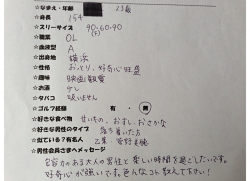 ☆なまえ・年齢 23歳
☆身長 154
☆スリーサイズ 90・60・90
(F)
☆職業 OL
☆血液型 A
☆出身地 横浜
☆性格 おっとり、好奇心旺盛
☆趣味 映画観賞
☆お酒 少し
☆タバコ 吸いません
☆ゴルフ経験 有・無
☆好きな食べ物 甘いもの、おすし、おさかな
☆好きな男性のタイプ 落ち着いた方
☆似ている?有名人 乙葉・
☆男性会員さまへメッセージ
包容力のある大人の男性と楽しい時間を過ごしたいです。
好奇心が強いです。色んなコト教えて下さい!